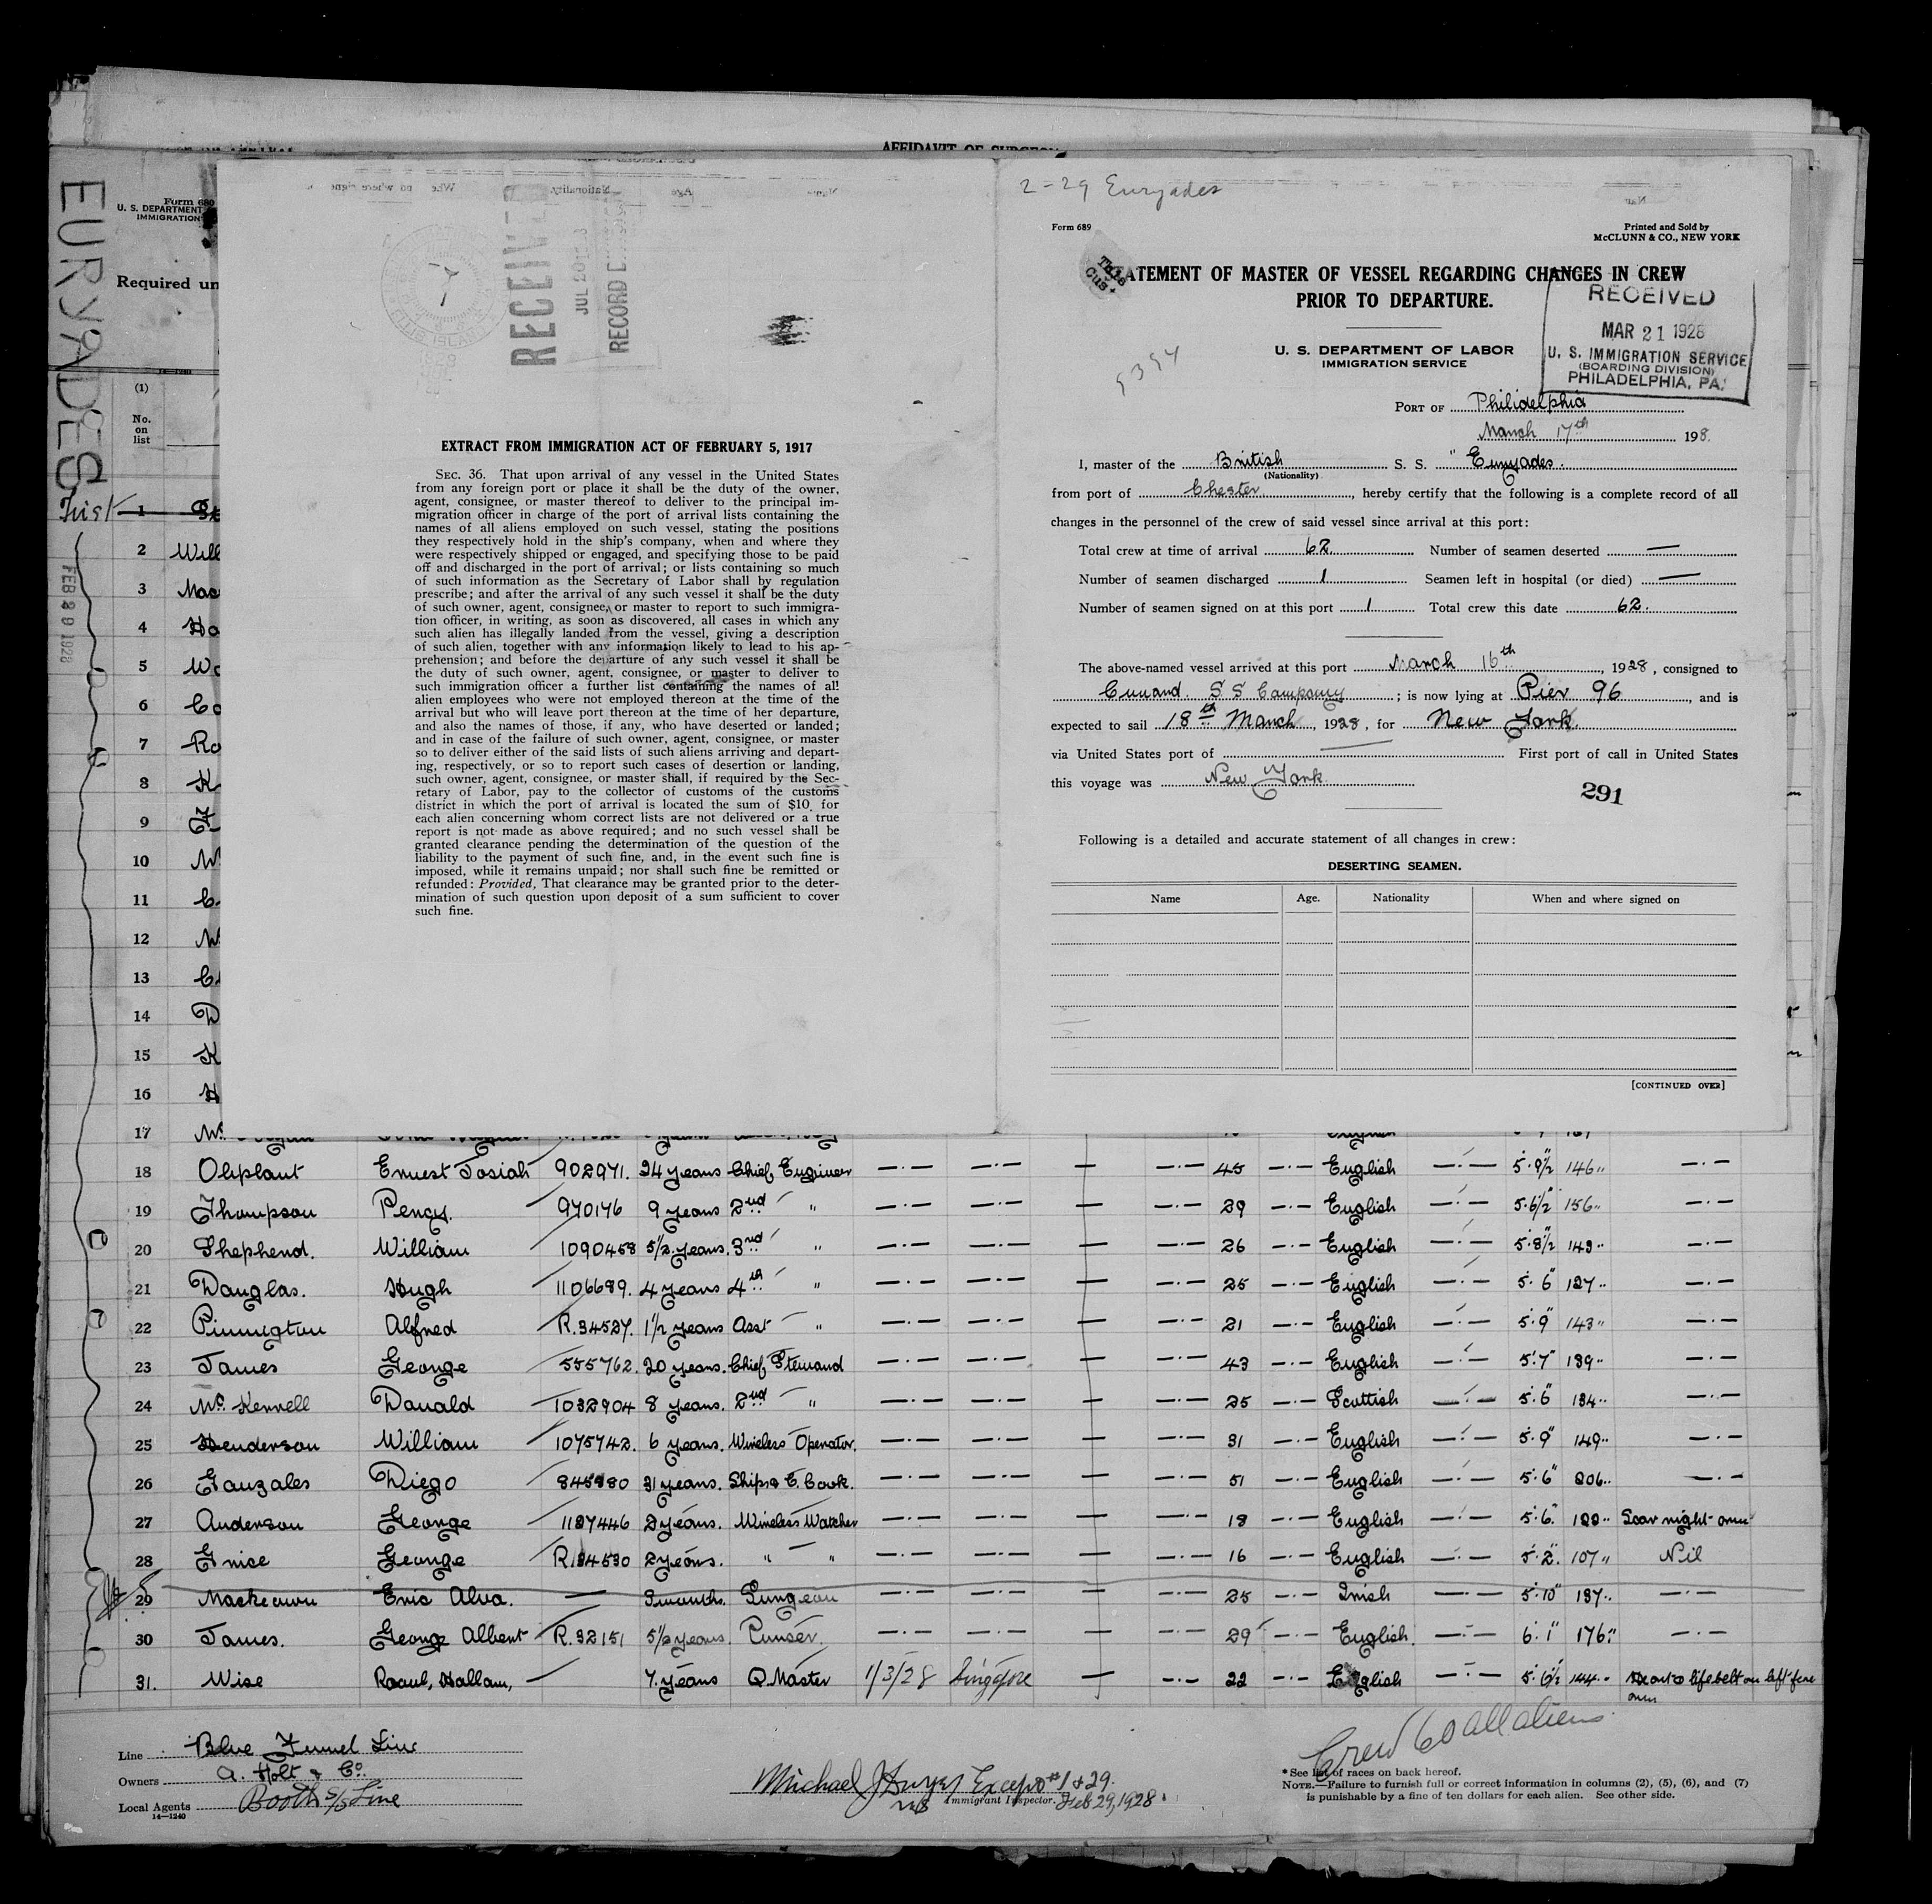 AFFIDAVIT OF SURGEON
EURYADES
Form 680
U. S. DEPARTMENT
IMMIGRATION
Required un
(1)
No.
on
list
FEB 29 1928
RECEIVED
JUL 20
RECORD
ELLIS ISLAND
EXTRACT FROM IMMIGRATION ACT OF FEBRUARY 5, 1917
SEC. 36. That upon arrival of any vessel in the United States
from any foreign port or place it shall be the duty of the owner,
agent, consignee, or master thereof to deliver to the principal im-
migration officer in charge of the port of arrival lists containing the
names of all aliens employed on such vessel, stating the positions
they respectively hold in the ship's company, when and where they
were respectively shipped or engaged, and specifying those to be paid
off and discharged in the port of arrival; or lists containing so much
of such information as the Secretary of Labor shall by regulation
prescribe; and after the arrival of any such vessel it shall be the duty
of such owner, agent, consignee, or master to report to such immigra-
tion officer, in writing, as soon as discovered, all cases in which any
such alien has illegally landed from the vessel, giving a description
of such alien, together with any information likely to lead to his ap-
prehension; and before the departure of any such vessel it shall be
the duty of such owner, agent, consignee, or master to deliver to
such immigration officer a further list containing the names of all
alien employees who were not employed thereon at the time of the
arrival but who will leave port thereon at the time of her departure,
and also the names of those, if any, who have deserted or landed;
and in case of the failure of such owner, agent, consignee, or master
so to deliver either of the said lists of such aliens arriving and depart-
ing, respectively, or so to report such cases of desertion or landing,
such owner, agent, consignee, or master shall, if required by the Sec-
retary of Labor, pay to the collector of customs of the customs
district in which the port of arrival is located the sum of $10 for
each alien concerning whom correct lists are not delivered or a true
report is not made as above required; and no such vessel shall be
granted clearance pending the determination of the question of the
liability to the payment of such fine, and, in the event such fine is
imposed, while it remains unpaid; nor shall such fine be remitted or
refunded: Provided, That clearance may be granted prior to the deter-
mination of such question upon deposit of a sum sufficient to cover
such fine.
2-29 Euryades
Form 689
Printed and Sold by
McCLUNN & CO., NEW YORK
ATEMENT OF MASTER OF VESSEL REGARDING CHANGES IN CREW
PRIOR TO DEPARTURE.
RECEIVED
MAR 21 1928
U. S. IMMIGRATION SERVICE
(BOARDING DIVISION)
PHILADELPHIA, PA.
U. S. DEPARTMENT OF LABOR
IMMIGRATION SERVICE
PORT OF Philidelphia
March 17th 198.
I, master of the British S. S. "Euryades.
(Nationality)
from port of Chester, hereby certify that the following is a complete record of all
changes in the personnel of the crew of said vessel since arrival at this port:
Total crew at time of arrival 62 Number of seamen deserted —
Number of seamen discharged 1 Seamen left in hospital (or died) —
Number of seamen signed on at this port 1 Total crew this date 62.
The above-named vessel arrived at this port March 16th, 1928, consigned to
Cunard S S Company; is now lying at Pier 96, and is
expected to sail 18th March, 1928, for New York
via United States port of — First port of call in United States
this voyage was New York
291
Following is a detailed and accurate statement of all changes in crew:
DESERTING SEAMEN.
Name Age. Nationality When and where signed on
[CONTINUED OVER]
1
2 Will
3 Mac
4 Ho
5 Wo
6 Co
7 Ro
8 K
9
10
11
12
13
14
15
16
17
18 Oliphant Ernest Josiah 902971. 24 years Chief Engineer —·— —·— — —·— 45 —·— English —·— 5·9½" 146" —·—
19 Thompson Percy. 970176 9 years 2nd " —·— —·— — —·— 29 —·— English —·— 5·6½" 156" —·—
20 Shepherd. William 1090458 5½ years. 3rd " —·— —·— — —·— 26 —·— English —·— 5·8½" 143" —·—
21 Douglas. Hugh 1106689. 4 years 4th " —·— —·— — —·— 25 —·— English —·— 5·6" 127" —·—
22 Pinnington Alfred R.34527. 1½ years Asst " —·— —·— — —·— 21 —·— English —·— 5·9" 143" —·—
23 James George 555762. 20 years. Chief Steward —·— —·— — —·— 43 —·— English —·— 5·7" 139" —·—
24 Mc. Kerrell Donald 1032904 8 years. 2nd " —·— —·— — —·— 25 —·— Scottish —·— 5·6" 134" —·—
25 Henderson William 1075742. 6 years. Wireless Operator. —·— —·— — —·— 31 —·— English —·— 5·9" 149" —·—
26 Gonzales Diego 845980 31 years. Ships Cook. —·— —·— — —·— 51 —·— English —·— 5·6" 206" —·—
27 Anderson George 1127446 2 years. Wireless Watcher —·— —·— — —·— 18 —·— English —·— 5·6" 122" Scar right arm
28 Grice George R.34530 2 years. " " —·— —·— — —·— 16 —·— English —·— 5·2" 107" Nil
29 Mackeown Eric Alva. — 3 months. Surgeon —·— —·— — —·— 25 —·— Irish —·— 5·10" 137" —·—
30 James. George Albert R.32151 5½ years. Purser. —·— —·— — —·— 29 —·— English. —·— 6·1" 176" —·—
31. Wise Raoul, Hallam, — 7 years Q. Master 1/3/28 Singapore — —·— 22 —·— English —·— 5·6½ 144" Heart & lifebelt on left fore
arm
Line Blue Funnel Line
Owners A. Holt & Co.
Local Agents Booth S/S Line
14—1240
Michael J Dwyer Except #1 & 29.
Immigrant Inspector. Feb 29, 1928.
Crew 60 all aliens
* See list of races on back hereof.
NOTE.—Failure to furnish full or correct information in columns (2), (5), (6), and (7)
is punishable by a fine of ten dollars for each alien. See other side.